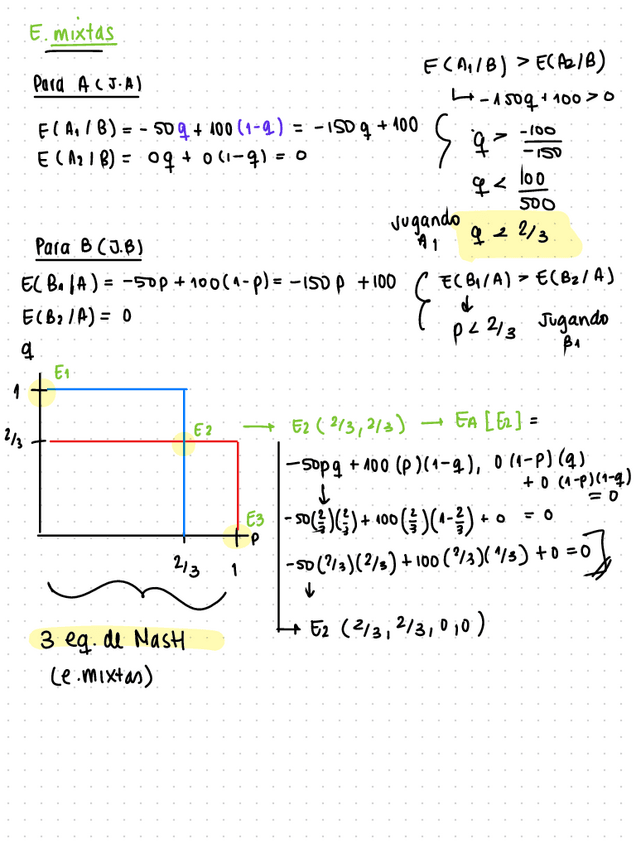 E. mixtas
Para A (J.A)
E(A1/B) = -50q + 100(1-q) = -150q + 100
E(A2/B) = 0q + 0(1-q) = 0
E(A1/B) > E(A2/B)
↳ -150q + 100 > 0
q > -100/-150
q < 100/500
Jugando A1 q < 2/3
Para B (J.B)
E(B1/A) = -50p + 100(1-p) = -150p + 100
E(B2/A) = 0
E(B1/A) > E(B2/A)
↓
p < 2/3 Jugando B1
q
E1
1
2/3
E2
E3
p
2/3 1
→ E2 (2/3, 2/3) → EA [E2] =
-50pq + 100 (p)(1-q), 0 (1-p)(q)
+ 0 (1-p)(1-q)
= 0
↓
-50(2/3)(2/3) + 100(2/3)(1-2/3) + 0 = 0
-50(2/3)(2/3) + 100(2/3)(1/3) + 0 = 0
↓
→ E2 (2/3, 2/3, 0, 0)
3 eq. de NasH
(e.mixtas)